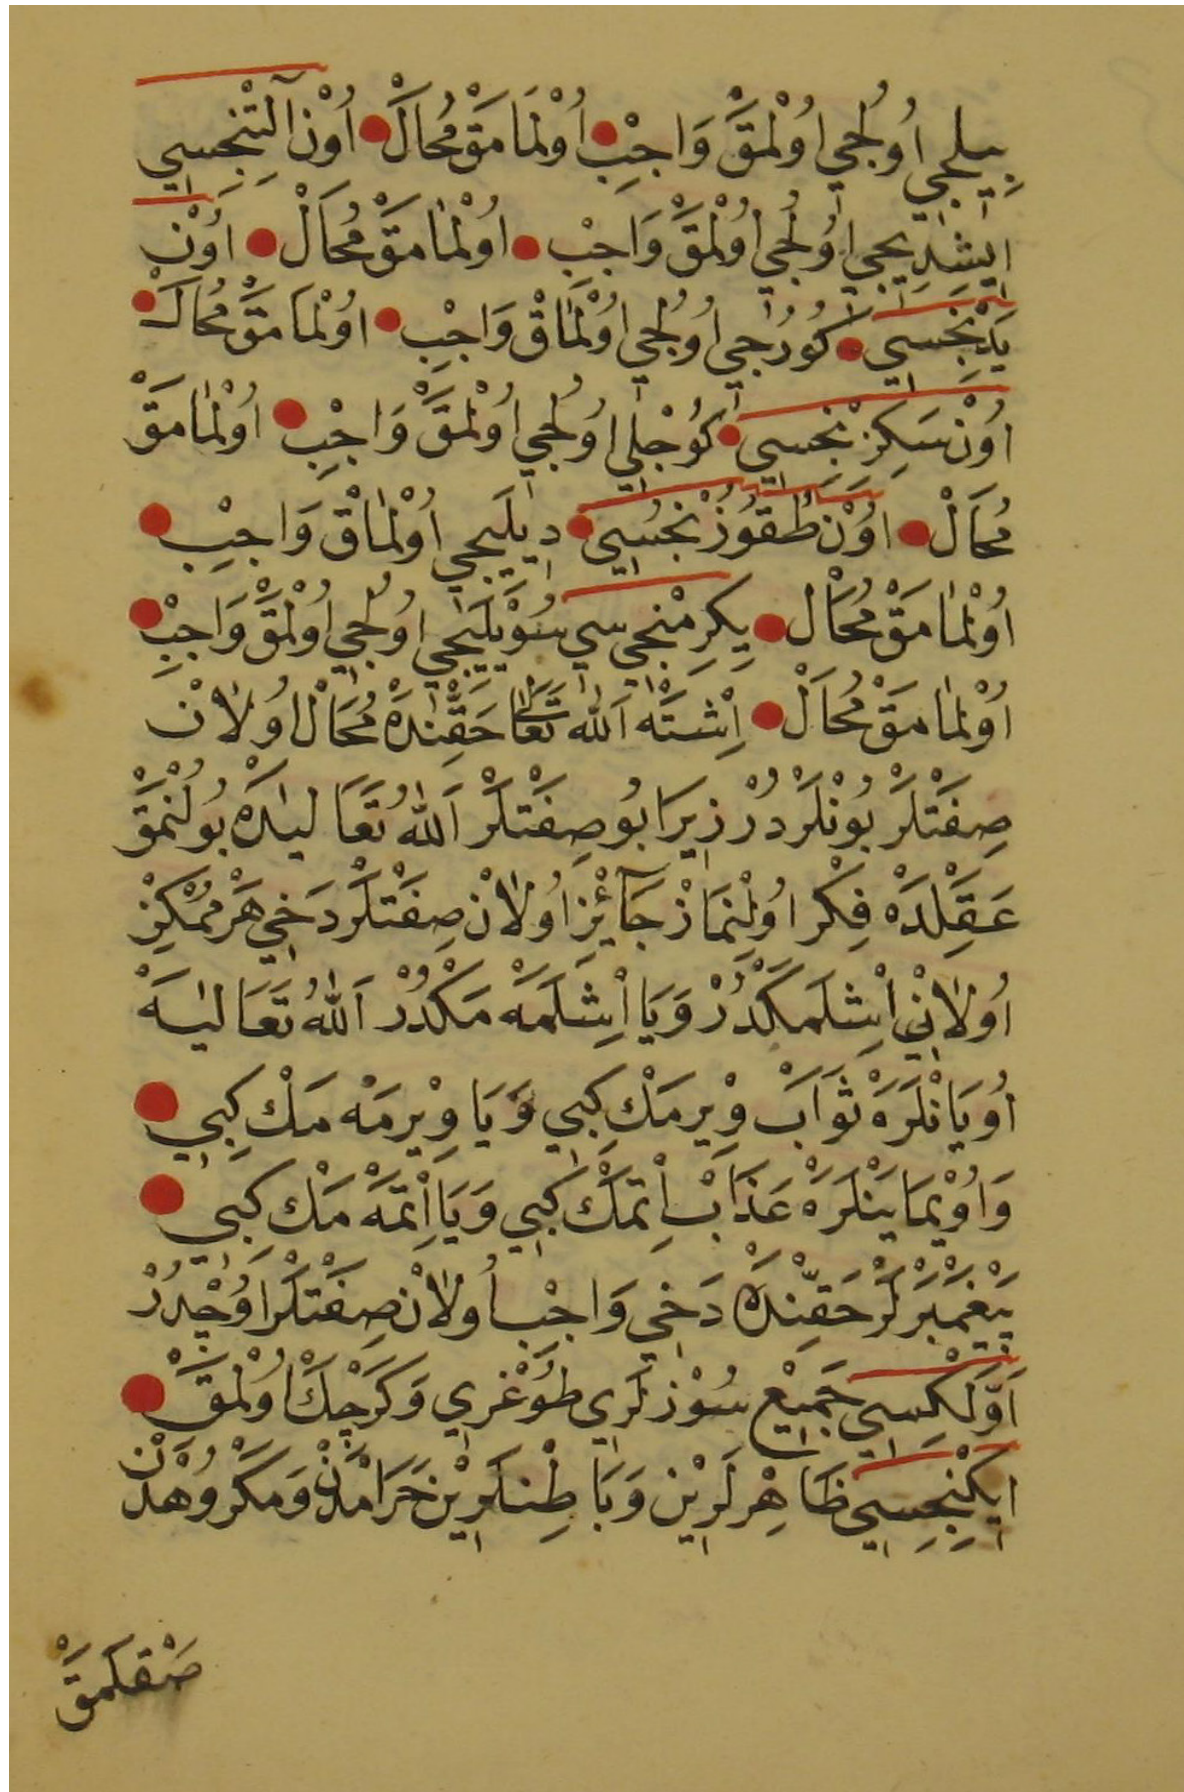 بِيلِيجِي اُولُجِي اُولْمَقْ وَاجِبْ اُولْمَامَقْ مُحَالْ اُونْ آلْتِنْجِسِي
اِيشِدِيجِي اُولُجِي اُولْمَقْ وَاجِبْ اُولْمَامَقْ مُحَالْ اُونْ
يَدِنْجِسِي كُورُجِي اُولُجِي اُولْمَاقْ وَاجِبْ اُولْمَامَقْ مُحَالْ
اُونْ سَكِزِنْجِسِي كُوجْلِي اُولُجِي اُولْمَقْ وَاجِبْ اُولْمَامَقْ
مُحَالْ اُونْ طُقُوزُنْجُسِي دِيلَيِجِي اُولْمَاقْ وَاجِبْ
اُولْمَامَقْ مُحَالْ يِكِرِمْنْجِي سِي سُوَيْلَيِيجِي اُولُجِي اُولْمَقْ وَاجِبْ
اُولْمَامَقْ مُحَالْ اِشْتَهْ اَللّٰه تَعَالَى حَقِّنْدَهْ مُحَالْ اُولَانْ
صِفَتْلَرْ بُونْلَرْدُرْ زِيرَا بُو صِفَتْلَرْ اَللّٰهُ تَعَالَيْدَهْ بُولُنْمَقْ
عَقِلْدَهْ فِكْر اُولِنَمَازْ جَآئِزْ اُولَانْ صِفَتْلَرْ دَخِي هَرْ مُمْكِنْ
اُولَانِي اِشْلَمَكْدُرْ وَيَا اِشْلَمَهْ مَكْدُرْ اَللّٰهُ تَعَالَيَهْ
اُويَانْلَرَهْ ثَوَابْ وِيرْمَكْ كِبِي وَيَا وِيرْمَهْ مَكْ كِبِي
وَاُويْمَايَنْلَرَهْ عَذَابْ اِتْمَكْ كِبِي وَيَا اِتْمَهْ مَكْ كِبِي
پَيْغَمْبَرْلَرْ حَقِّنْدَهْ دَخِي وَاجِبْ اُولَانْ صِفَتْلَرْ اُوچْدُرْ
اَوَّلْكِسِي جَمِيْعِ سُوزْلَرِي طُوغْرِي وَكَرْچَكْ اُولْمَقْ
اِيكِنْجِسِي ظَاهِرْلَرِيْن وَبَاطِنْلَرِيْن حَرَامْدَنْ وَمَكْرُوهْدَنْ
صَقْلَمَقْ